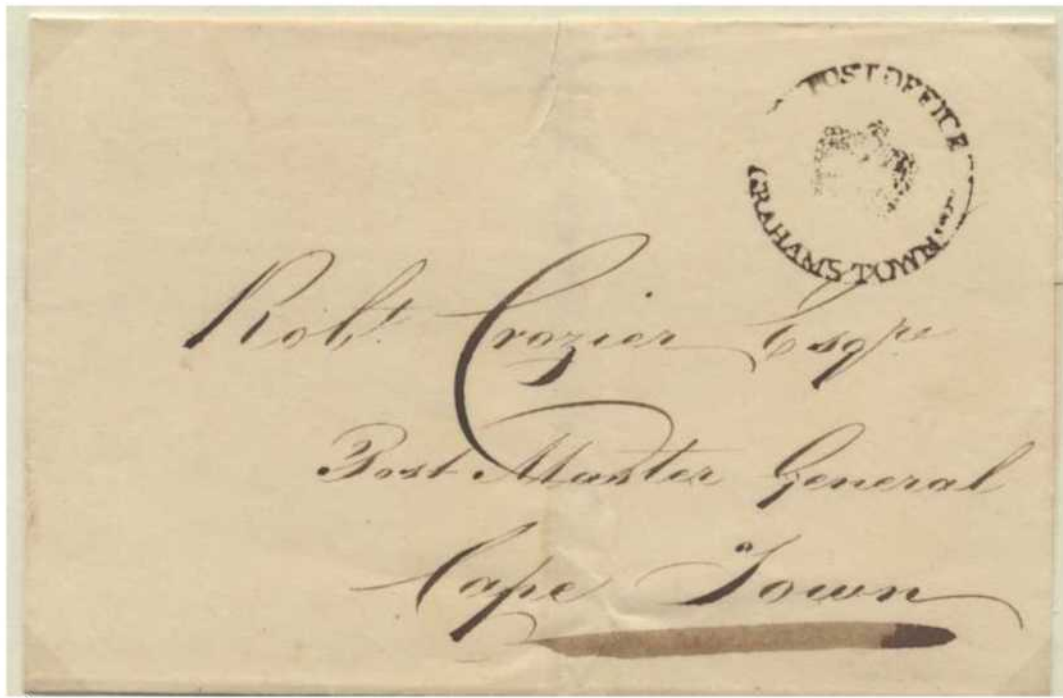 POST OFFICE
GRAHAM'S TOWN
Robt. Crozier Esqre
Post Master General
Cape Town